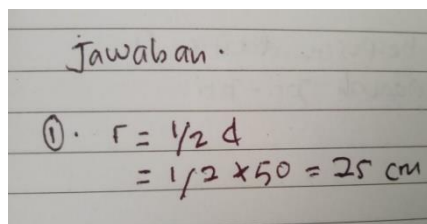 Jawaban.
①. r = 1/2 d
= 1/2 x 50 = 25 cm